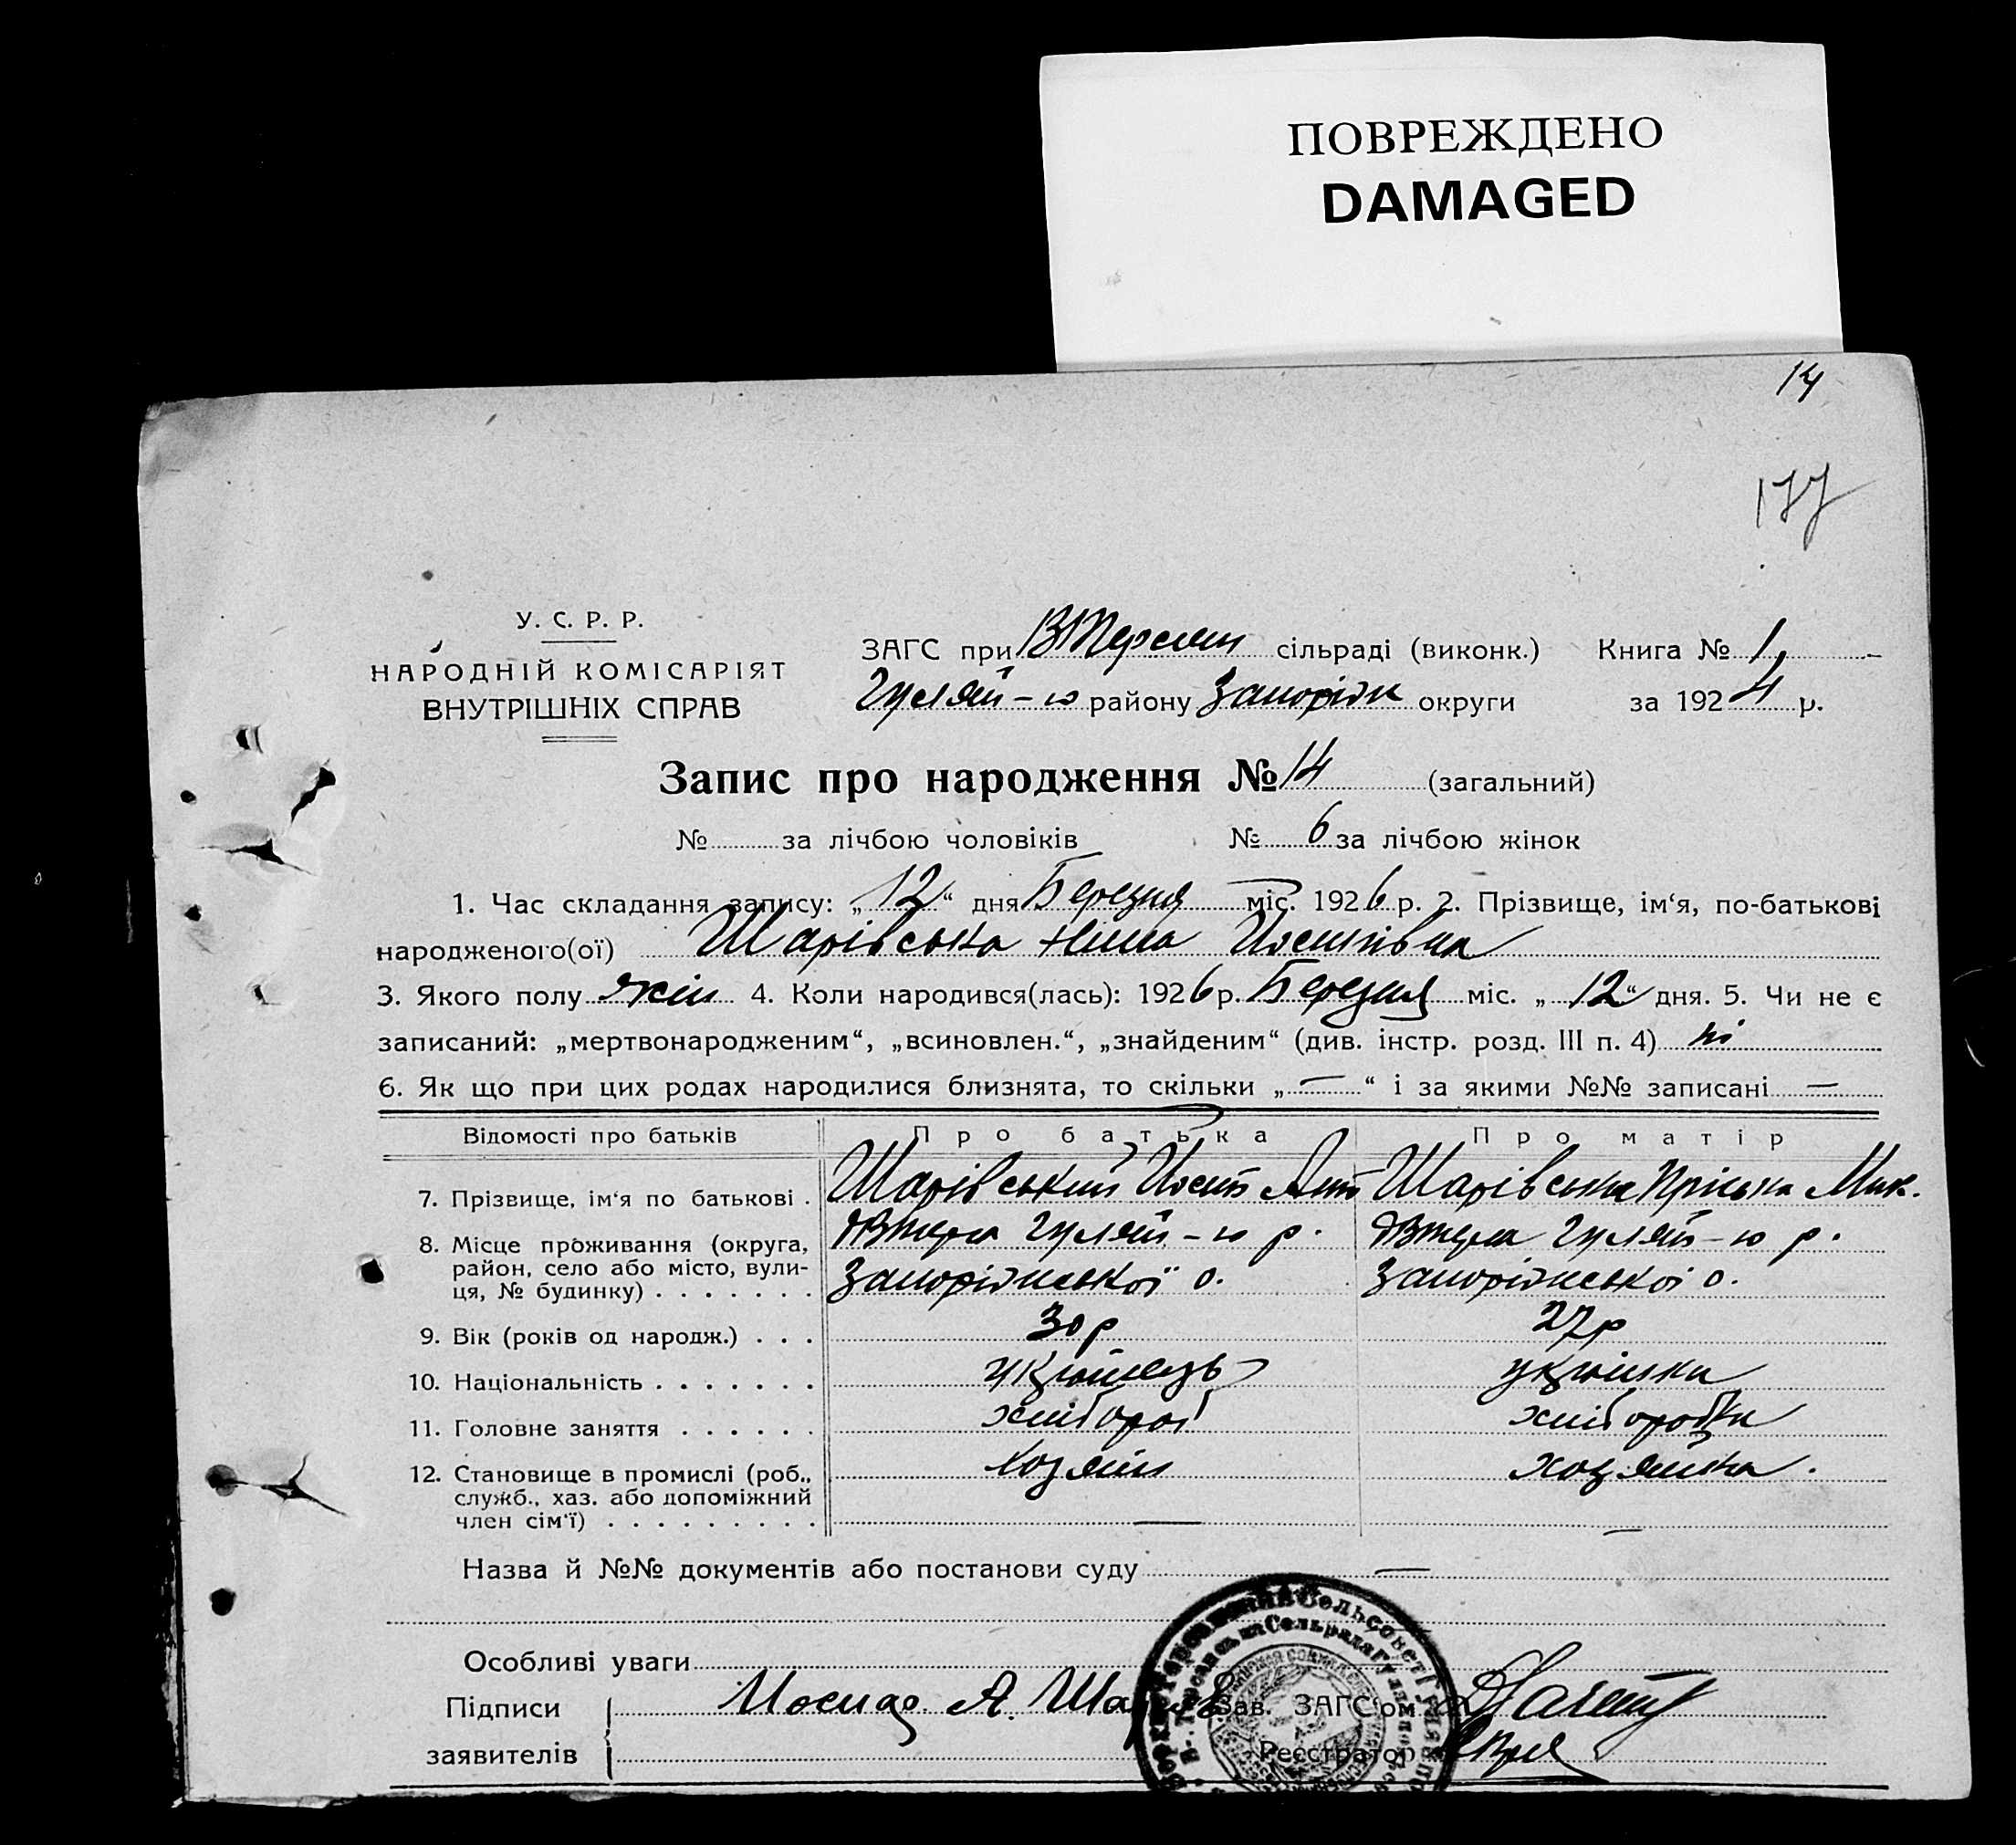 ПОВРЕЖДЕНО
DAMAGED
14
177
У. С. Р. Р.
НАРОДНІЙ КОМІСАРІЯТ
ВНУТРІШНІХ СПРАВ
ЗАГС при сільраді (виконк.) Книга № 1
Гуляй-ю району Запоріж округи за 1924 р.
Запис про народження № 14 (загальний)
№ за лічбою чоловіків № 6 за лічбою жінок
1. Час складання запису: „12“ дня Березня міс. 1926 р. 2. Прізвище, ім‘я, по-батькові
народженого(ої) Шарівська Нина Йосипівна
3. Якого полу жін 4. Коли народився(лась): 1926 р. Березня міс. „12“ дня. 5. Чи не є
записаний: „мертвонародженим“, „всиновлен.“, „знайденим“ (див. інстр. розд. III п. 4) ні
6. Як що при цих родах народилися близнята, то скільки „—“ і за якими №№ записані —
Відомості про батьків Про батька Про матір
7. Прізвище, ім‘я по батькові . Шарівський Йосип Ант Шарівська Пріська Мик.
8. Місце проживання (округа, Гуляй-ю р. Гуляй-ю р.
район, село або місто, вули- Запоріжської о. Запоріжської о.
ця, № будинку) . . . . . . .
9. Вік (років од народж.) . . . 30 р 27 р
10. Національність . . . . . . . українець українка
11. Головне заняття . . . . . . хлібороб хліборобка
12. Становище в промислі (роб., хозяїн хозяйка.
служб., хаз. або допоміжний
член сім‘ї) . . . . . . . . . — —
Назва й №№ документів або постанови суду —
Особливі уваги
Підписи А. Зав. ЗАГС‘ом
заявителів Реєстратор